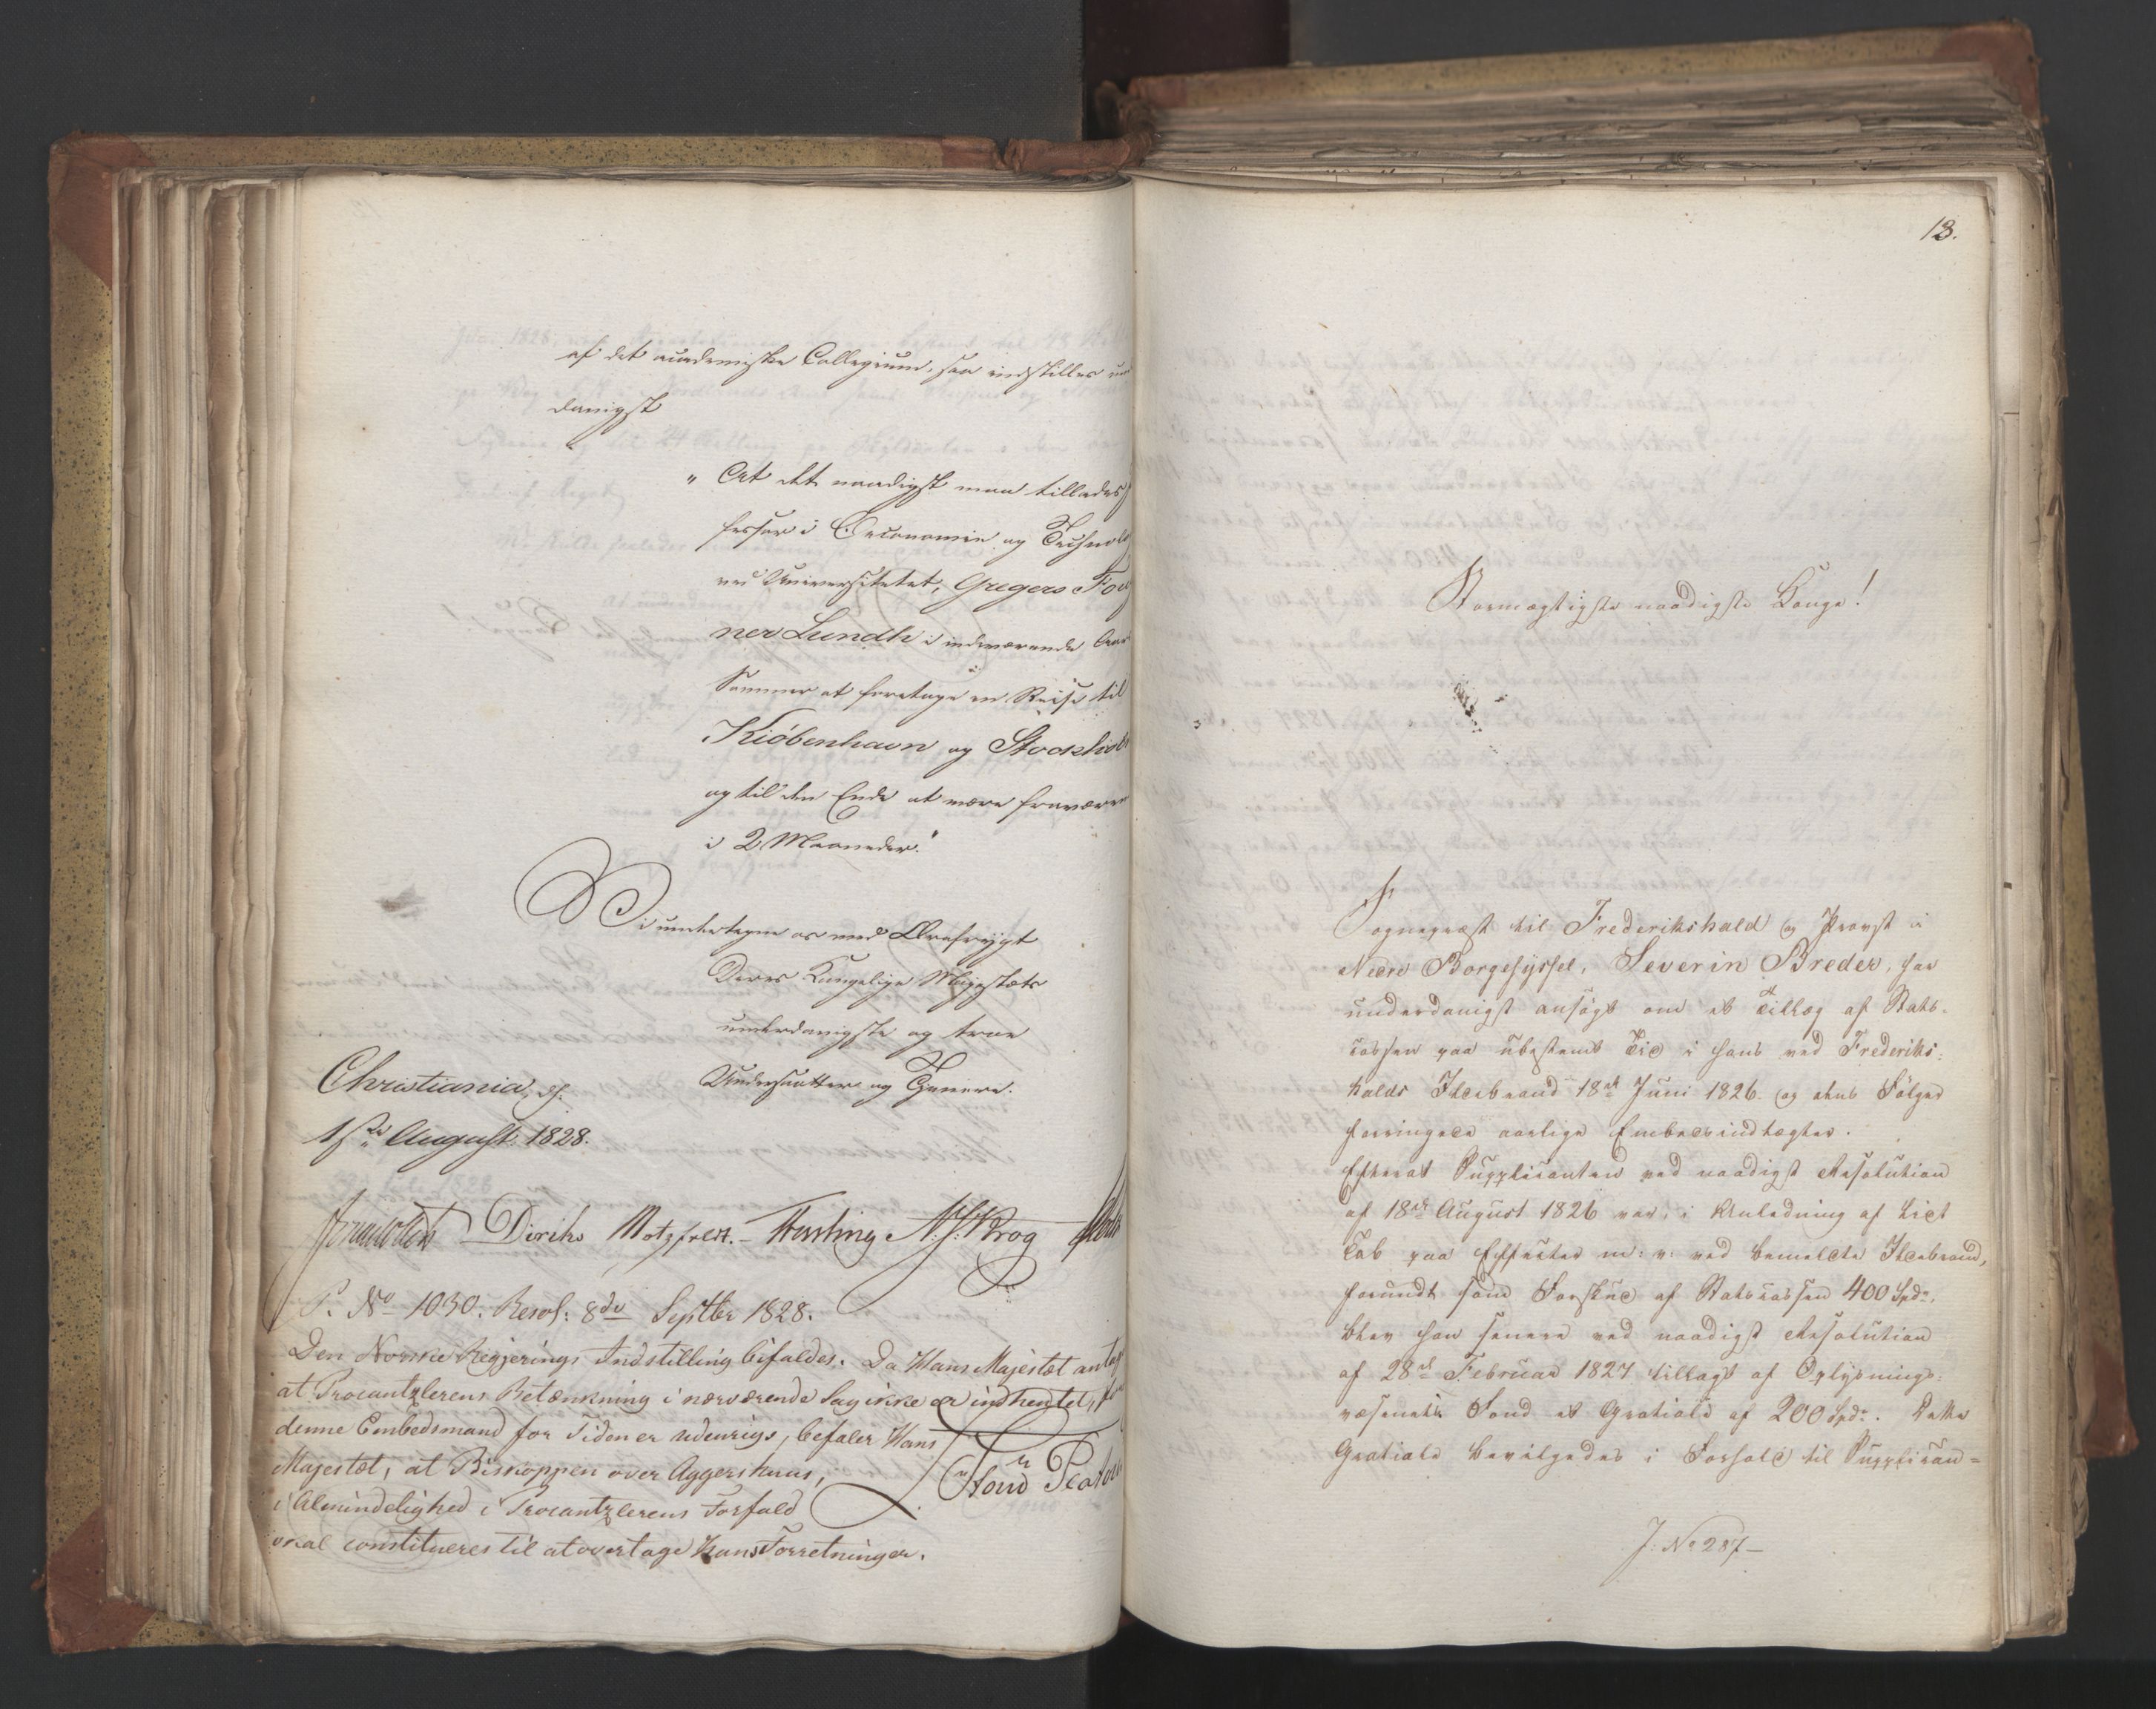 af det academiske Collegium, saa indstilles un
danigst
" At det naadigst maa tillades
fessor i Oeconomie og Technolo
ved Universitetet, Gregers Fou
ner Lundh i indeværende Aar
Sommer at foretage en Reise til
Kiöbenhavn og Stockhol
og til den Ende at være fraværen
i 2 Maaneder."
Vi undertegne os med Ærefrygt
Deres Kongelige Majestæts
underdanigste og troe
Undersaatter og Tjenere.
Christiania, d:
1ste August 1828.
Diriks Motzfeldt. Hersleb Krog
P. No 1030. Resol: 8de Septbr 1828.
Den Norske Regjerings Indstilling bifaldes. Da Hans Majestæt antag
at Procantzlerens Betænkning i nærværende Sag ikke er indhentet,
denne Embedsmand for Tiden er udenrigs, befaler Hans
Majestæt, at Biskoppen over Aggershuus,
i Almindelighed i Procantzlerens Forfald
skal constitueres til at overtage hans Forretninger.
13.
Stormægtigste naadigste Konge!
Sognepræst til Frederikshald og Provst i
Nedre Borgesyssel, Severin Breder, har
underdanigst ansögt om et Tillæg af Stats-
cassen paa ubestemt Tid i hans ved Frederiks-
halds Ildebrand 18de Juni 1826 og dens Fölger
forringede aarlige Embedsindtægter.
Efterat Supplicanten ved naadigst Resolution
af 18de August 1826 var, i Anledning af lidt
Tab paa Effecter m: v: ved bemeldte Ildebrand,
forundt som Forskud af Statscassen 400 Spd:,
blev han senere ved naadigst Resolution
af 28de Februar 1827 tillagt af Oplysnings-
væsenets Fond et Gratiale af 200 Spd:. Dette
Gratiale bevilgedes i Forhold til Supplican=
J: No 287